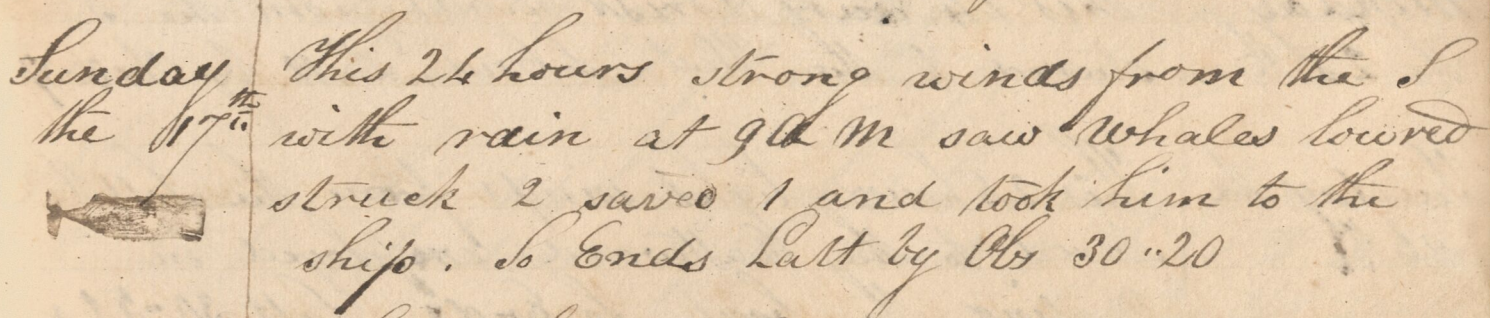 Sunday This 24 hours strong winds from the S
the 17th with rain at 9 A M saw Whales lowred
struck 2 saved 1 and took him to the
ship. So Ends Latt by Obs 30..20